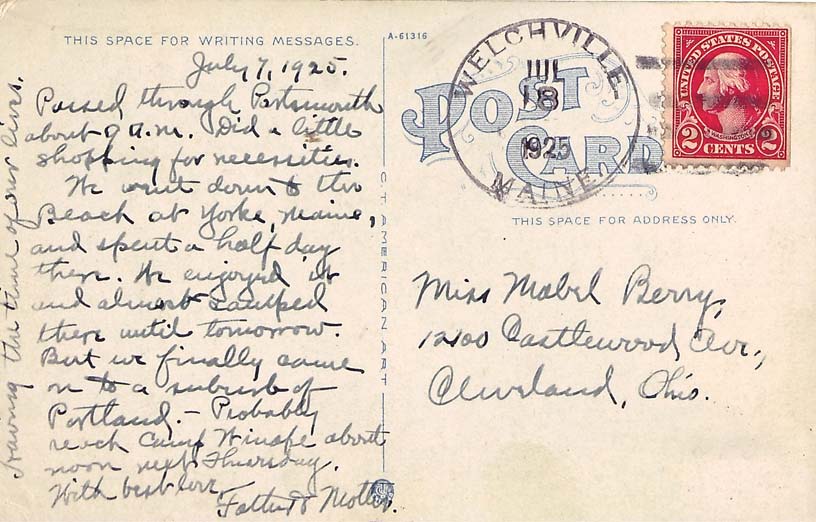 THIS SPACE FOR WRITING MESSAGES.
A-61316
July 7, 1925.
Passed through Portsmouth
about 9 a.m. Did a little
shopping for necessities.
We went down to the
Beach at Yorke, Maine,
and spent a half day
there. We enjoyed it
and almost camped
there until tomorrow.
But we finally came
on to a suburb of
Portland. - Probably
reach Camp Winape about
noon next Thursday.
With best love,
Father & Mother.
Having the time of our lives.
C.T. AMERICAN ART
POST CARD
WELCHVILLE
JUL
8
1925
MAINE
UNITED STATES POSTAGE
WASHINGTON
2 CENTS 2
THIS SPACE FOR ADDRESS ONLY.
Miss Mabel Berry,
12100 Castlewood Ave.,
Cleveland, Ohio.